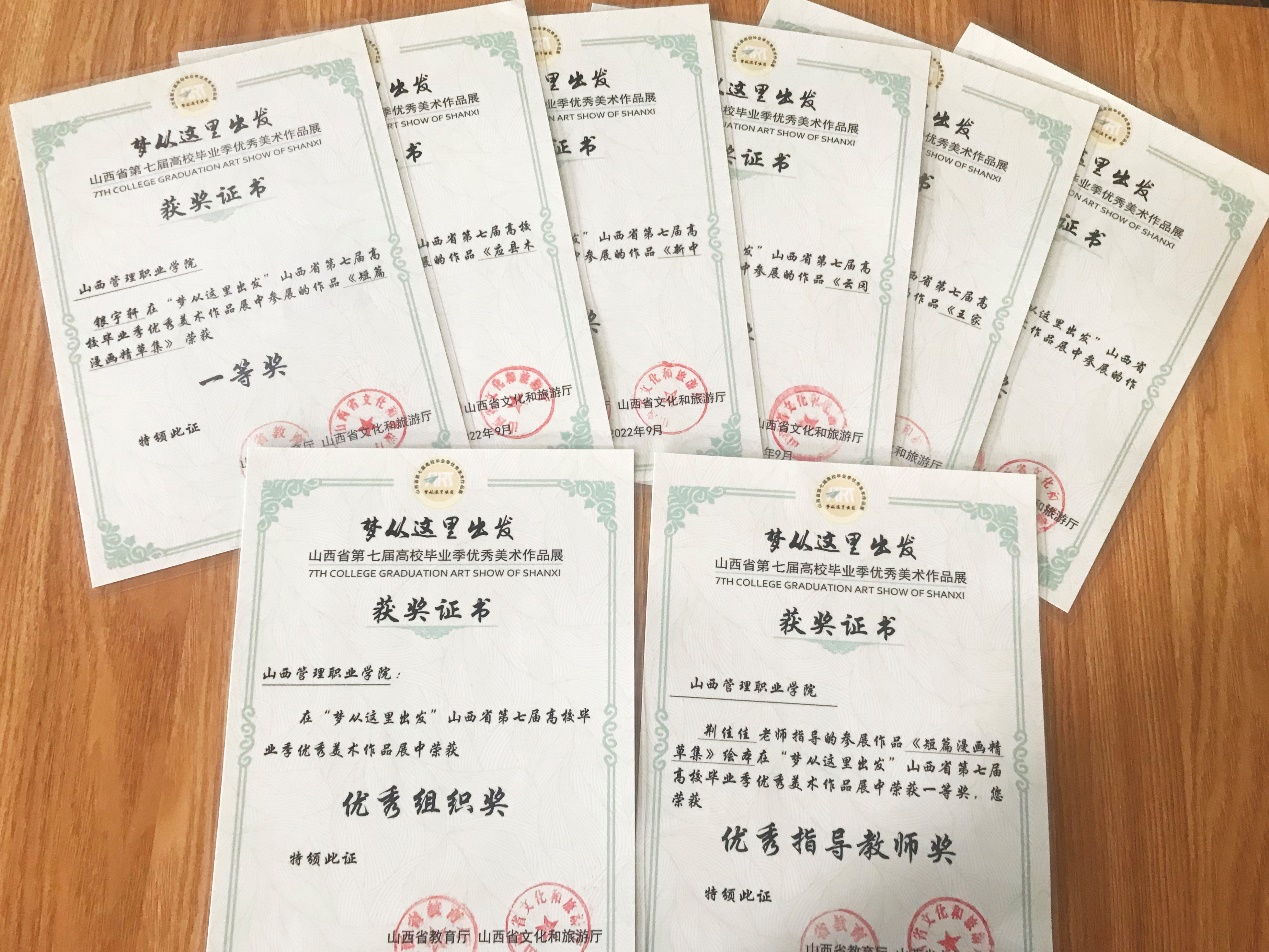 梦从这里出发
山西省第七届高校毕业季优秀美术作品展
7TH COLLEGE GRADUATION ART SHOW OF SHANXI
获奖证书
山西管理职业学院
银宇轩在“梦从这里出发”山西省第七届高
校毕业季优秀美术作品展中参展的作品《短篇
漫画精草集》荣获
一等奖
特颁此证
山西省文化和旅游厅
出发
季优秀美术作品展
RT SHOW OF SHANXI
书
山西省第七届高校
展的作品《应县木
山西省文化和旅游厅
022年9月
里出发
业季优秀美术作品展
ATION ART SHOW OF SHANXI
证书
”山西省第七届高
参展的作品《新中
奖
山西省文化和旅游厅
2022年9月
从这里出发
校毕业季优秀美术作品展
GRADUATION ART SHOW OF SHANXI
奖证书
发”山西省第七届高
中参展的作品《云冈
山西省文化和旅游厅
年9月
出发
优秀美术作品展
SHOW OF SHANXI
书
西省第七届高
的作品《王家
和旅游厅
里出发
业季优秀美术作品展
ION ART SHOW OF SHANXI
证书
从这里出发”山西省
作品展中参展的作
奖
和旅游厅
梦从这里出发
山西省第七届高校毕业季优秀美术作品展
7TH COLLEGE GRADUATION ART SHOW OF SHANXI
获奖证书
山西管理职业学院：
在“梦从这里出发”山西省第七届高校毕
业季优秀美术作品展中荣获
优秀组织奖
特颁此证
山西省教育厅 山西省文化和旅游厅
梦从这里出发
山西省第七届高校毕业季优秀美术作品展
7TH COLLEGE GRADUATION ART SHOW OF SHANXI
获奖证书
山西管理职业学院
荆佳佳老师指导的参展作品《短篇漫画精
草集》绘本在“梦从这里出发”山西省第七届
高校毕业季优秀美术作品展中荣获一等奖，您
荣获
优秀指导教师奖
特颁此证
山西省教育厅